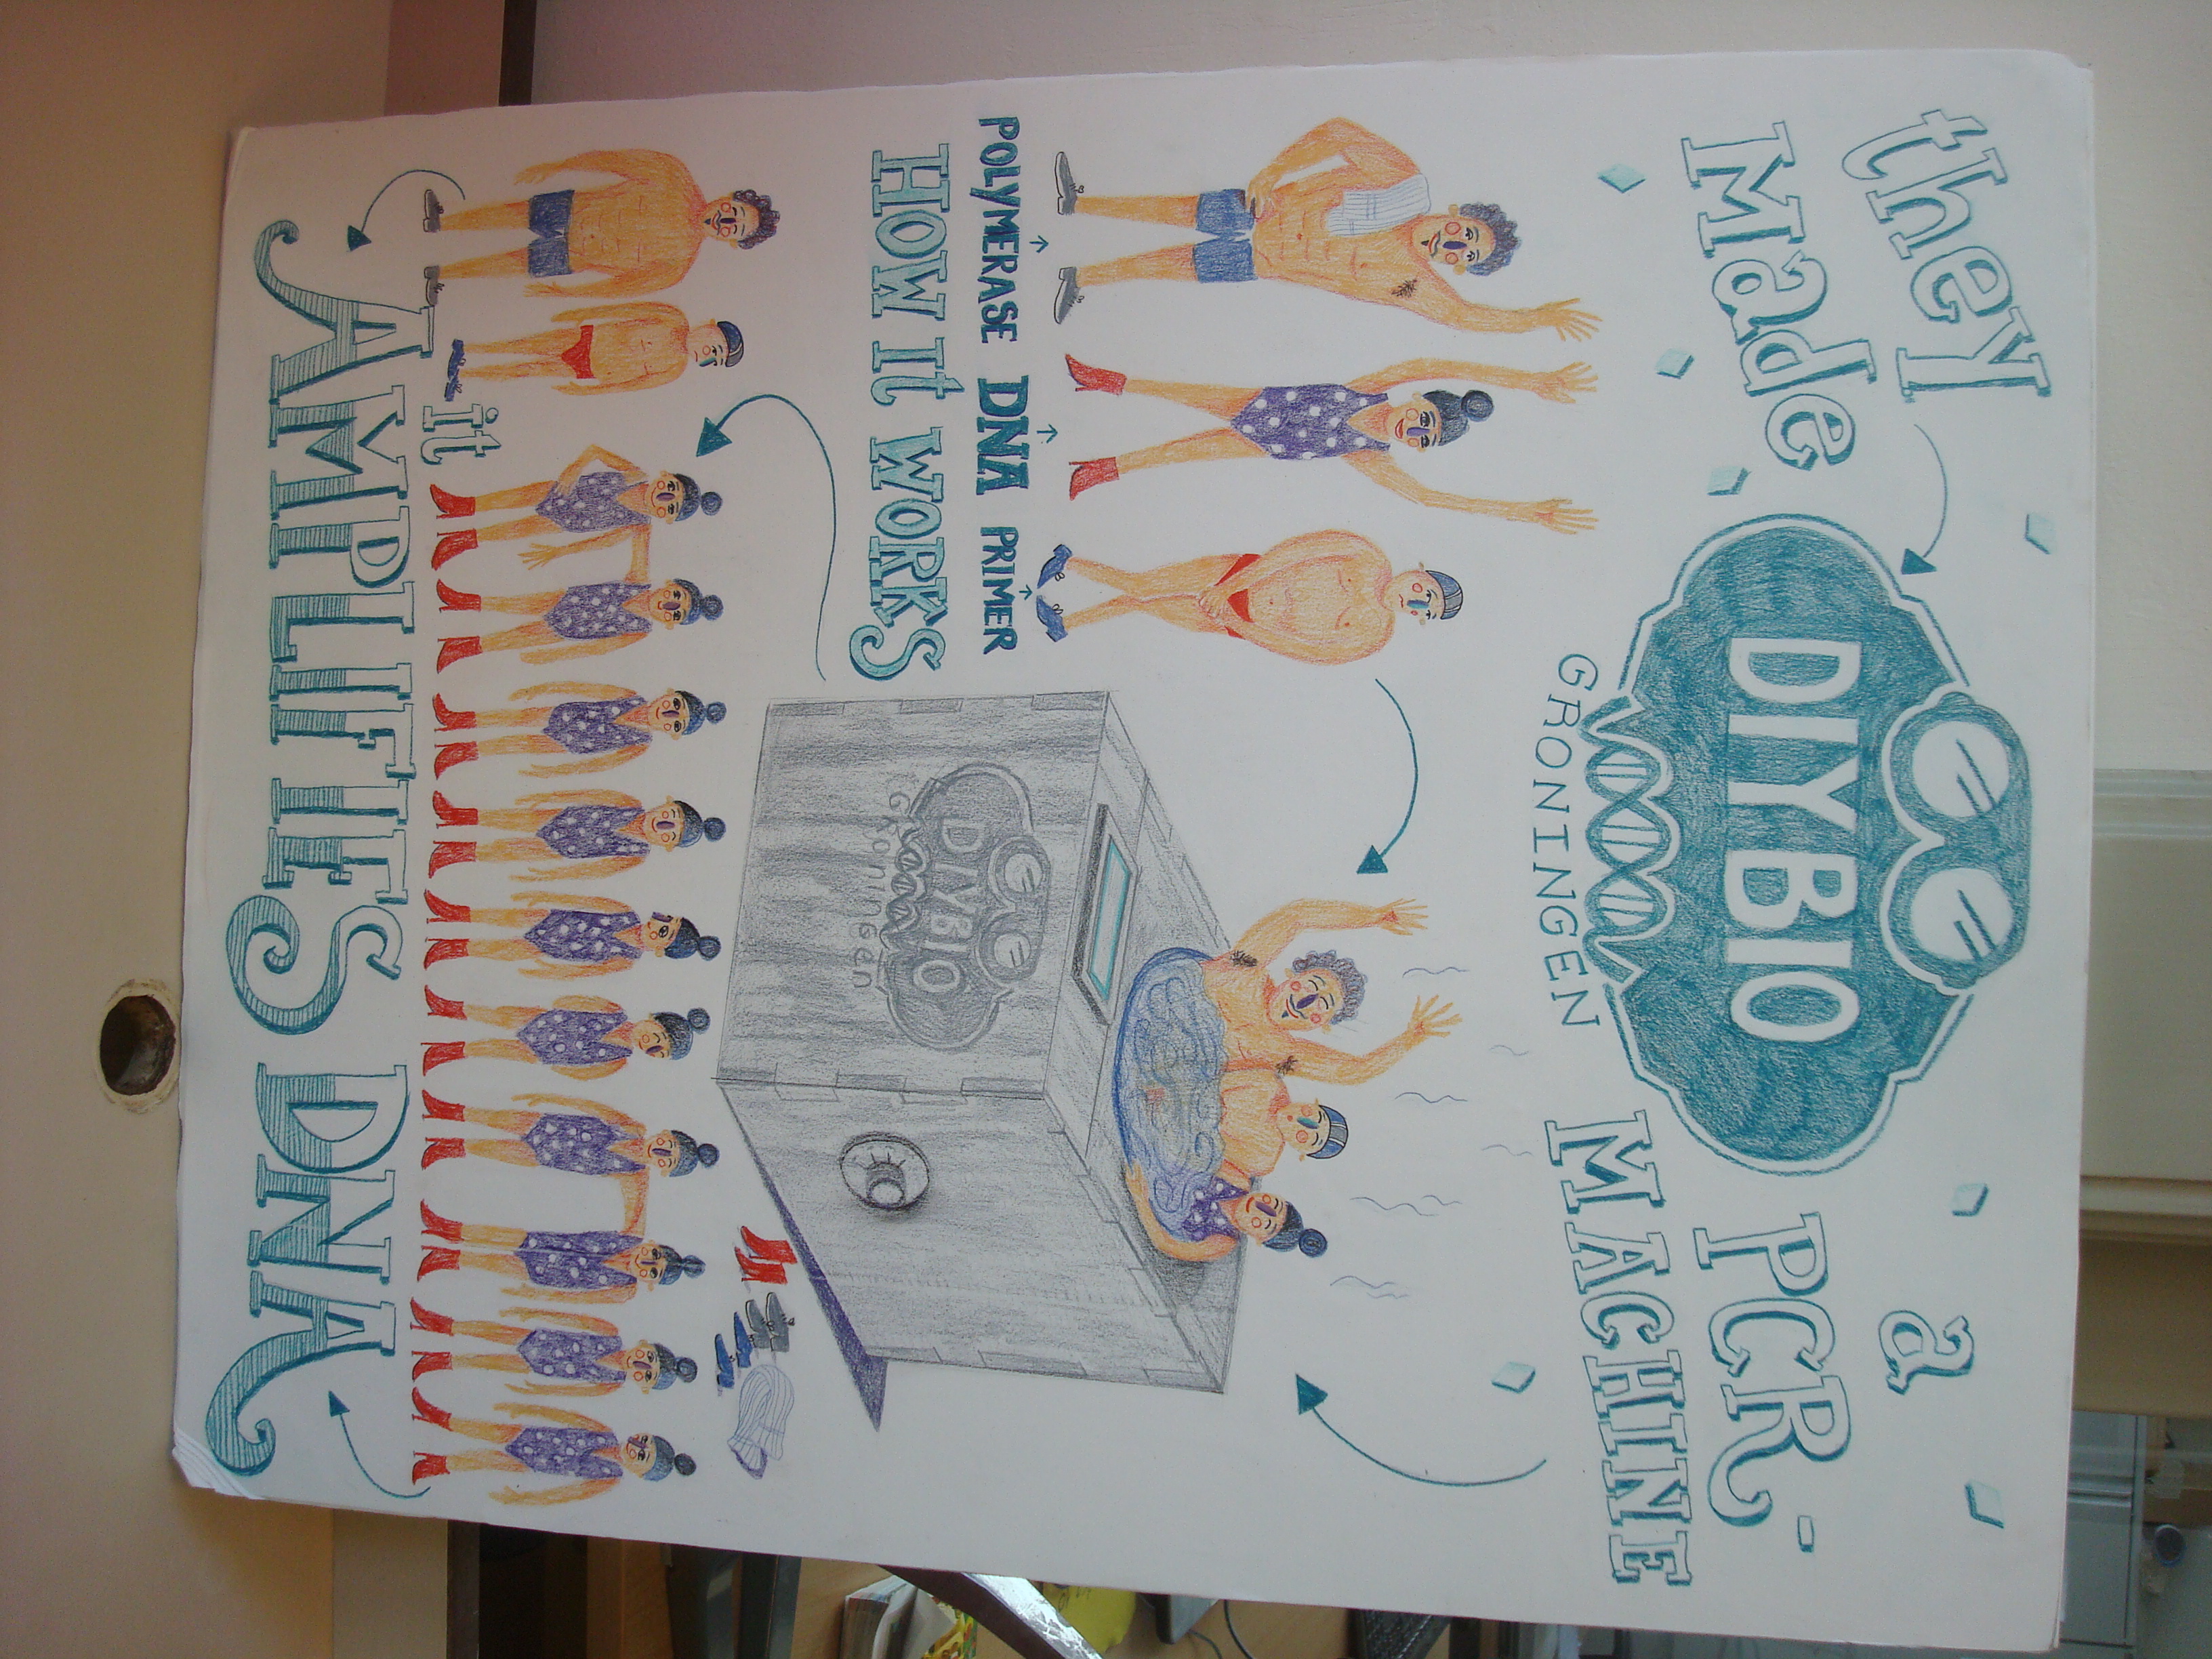 they
Made
DIYBIO
GRONINGEN
a
PCR-
MACHINE
POLYMERASE DNA PRIMER
HOW It WORKS
DIYBIO
Groningen
it
AMPLIFIES DNA